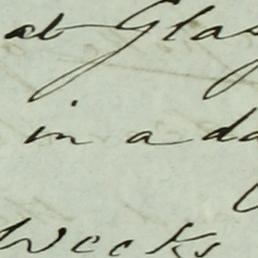 at Glas
in a da
Weeks